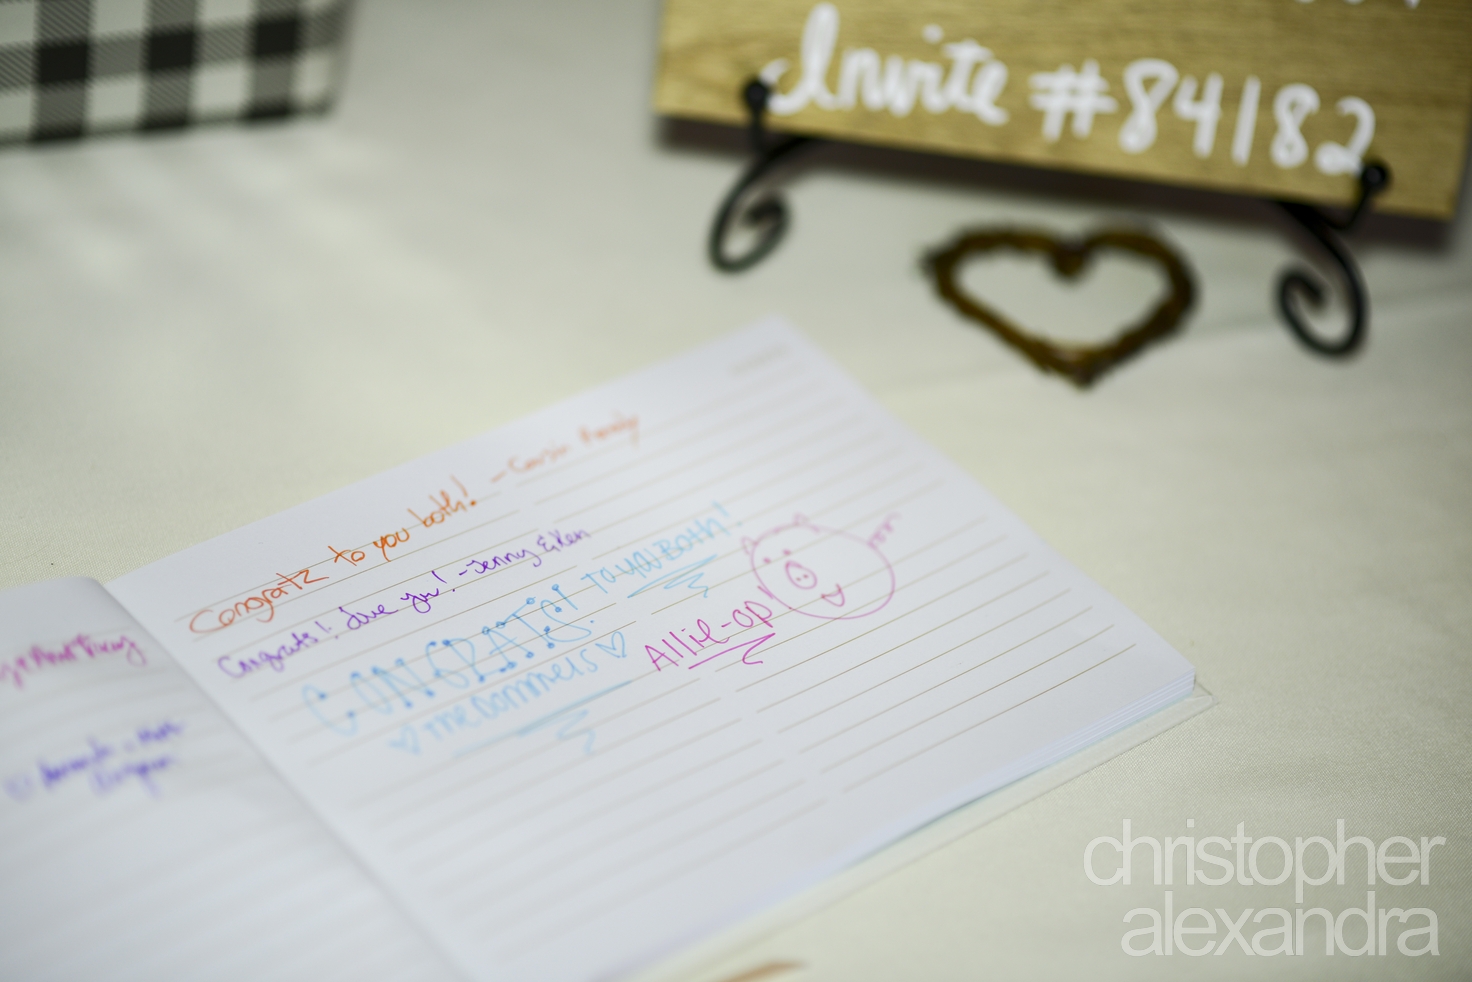 Invite #84182
Congratz to you both! - Cousin Randy
Congrats! Love you! - Jenny & Ken
CONGRATS! to you Both!
♡ The Dommels ♡
Allie-op!
christopher
alexandra